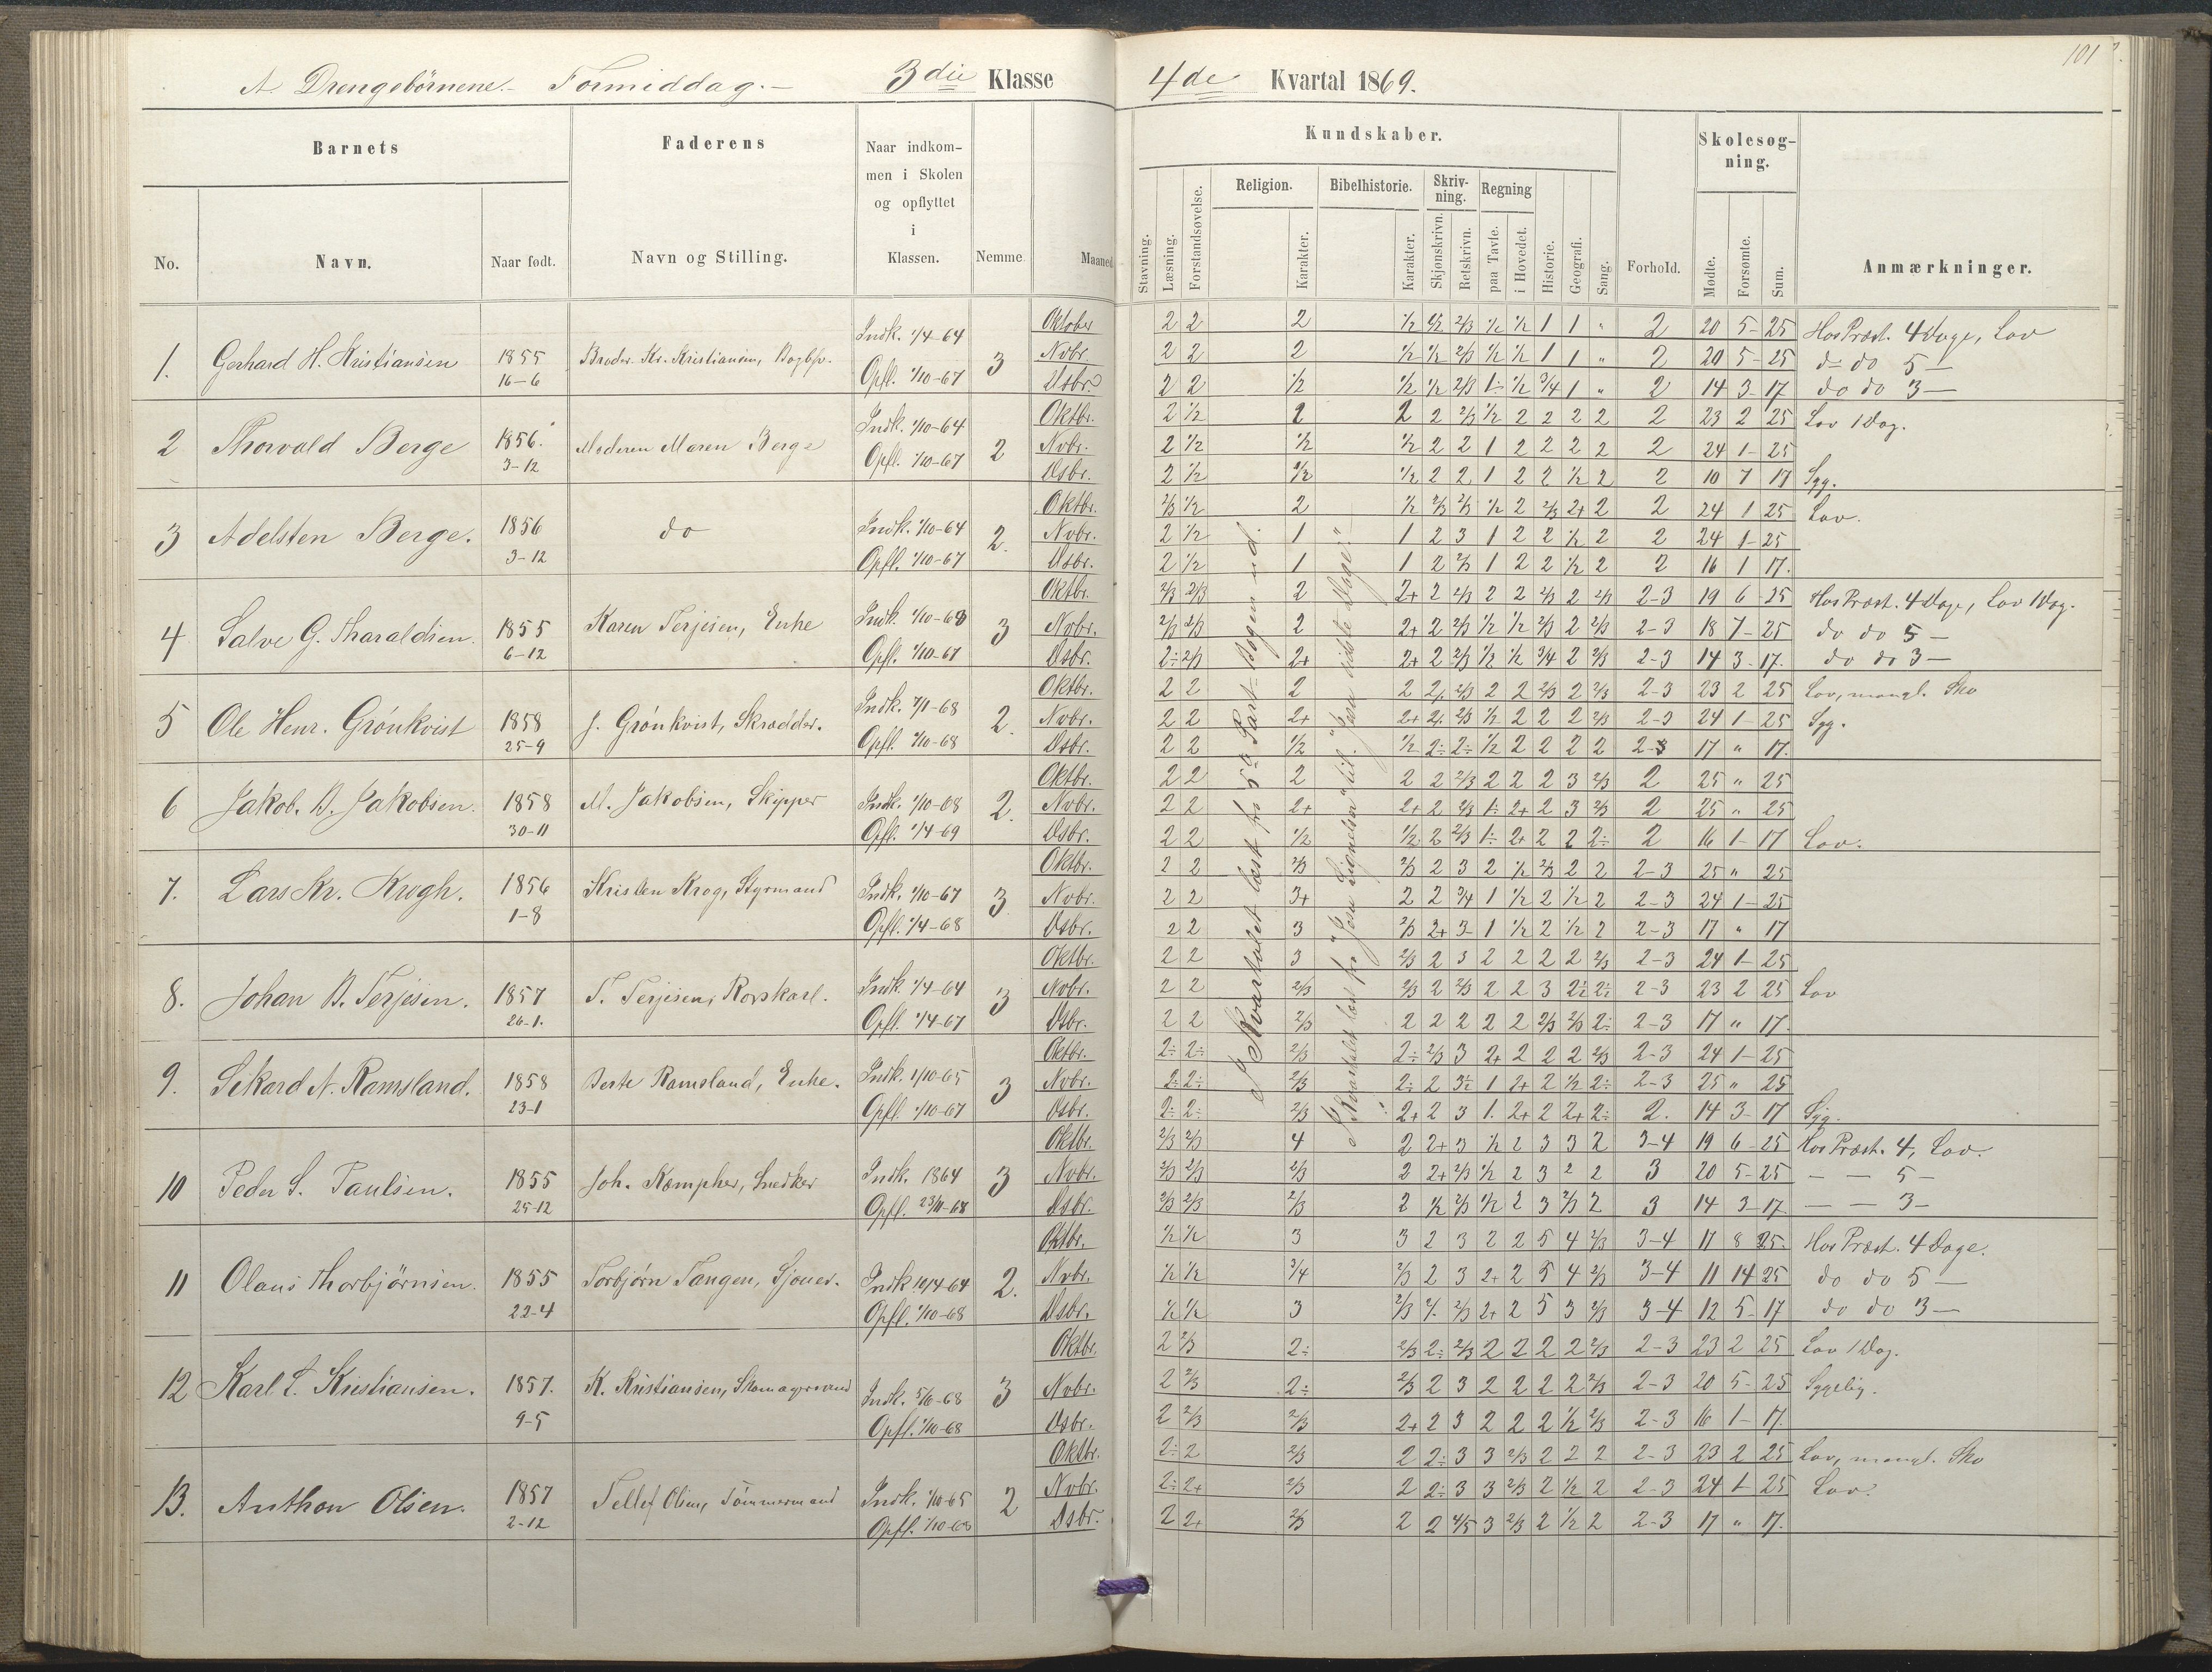 101
A. Drengebørnene. – Formiddag. – 3die Klasse 4de Kvartal 1869.
Barnets Faderens Naar indkommen i Skolen og opflyttet i Klassen. Nemme. Maaned Kundskaber. Forhold. Skolesøgning. Anmærkninger.
No. Navn. Naar født. Navn og Stilling.
Stavning. Læsning. Forstandsøvelse. Religion. Karakter. Bibelhistorie. Karakter. Skrivning. Skjønskrivn. Retskrivn. Regning paa Tavle. i Hovedet. Historie. Geografi. Sang. Mødte. Forsømte. Sum.
1. Gerhard H. Kristiansen 1855 16-6 Broder. Kr. Kristiansen, Indk. 1/4-64 Opfl. 1/10-67 3
Oktober 2 2 2 1/2 1/2 2/3 1/2 1/2 1 1 " 2 20 5-25 Hos Præst. 4 Dage, Lov
Nvbr. 2 2 2 1/2 1/2 2/3 1/2 1/2 1 1 " 2 20 5-25 do do 5 —
Dsbr. 2 2 1/2 1/2 1/2 2/3 1÷ 1/2 3/4 1 " 2 14 3-17 do do 3 —
2 Thorvald Berge 1856. 3-12 Moderen Maren Berge Indk. 1/10-64 Opfl. 1/10-67 2
Oktbr. 2 1/2 2 2 2 2/3 1/2 2 2 2 2 2 23 2 25 Lov 1 Dag.
Nvbr. 2 1/2 1/2 1/2 2 2 1 2 2 2 2 2 24 1-25
Dsbr. 2 1/2 1/2 1/2 2 2 1 2 2 1/2 2 2 10 7 17 Syg.
3 Adelsten Berge. 1856 3-12 do Indk. 1/10-64 Opfl. 1/10-67 2.
Oktbr. 2/3 1/2 2 1/2 2/3 2/3 1/2 2 2/3 2+ 2 2 24 1 25 Lov.
Nvbr. 2 1/2 1 1 2 3 1 2 2 1/2 2 2 24 1-25
Dsbr. 2 1/2 1 1 2 2/3 1 2 2 1/2 2 2 16 1 17.
4 Salve G. Tharaldsen. 1855 6-12 Karen Terjesen, Enke Indk. 1/10-63 Opfl. 1/10-67 3
Oktbr. 2/3 2/3 2 2+ 2 2/3 2 2 2/3 2 2/3 2-3 19 6-25 Hos Præst. 4 Dage, Lov 1 Dag.
Nvbr. 2/3 2/3 2 2+ 2 2/3 1/2 1/2 2/3 2 2/3 2-3 18 7-25 do do 5 —
Dsbr. 2÷ 2/3 2+ 2+ 2 2/3 1/2 1/2 3/4 2 2/3 2-3 14 3-17. do do 3 —
5 Ole Henr. Grönkvist 1858 25-9 J. Grönkvist, Skrædder. Indk. 7/1-68 Opfl. 1/10-68 2.
Oktbr. 2 2 2 2 2/3 2 2 2/3 2 2/3 2-3 23 2 25 Lov, mangl. Sko
Nvbr. 2 2 2+ 2+ 2/3 1/2 2 2 2 2/3 2-3 24 1-25 Syg.
Dsbr. 2 2 1/2 1/2 2÷ 2÷ 1/2 2 2 2 2 2-3 17 " 17.
6 Jakob. B. Jakobsen. 1858 30-11 M. Jakobsen, Skipper Indk. 1/10-68 Opfl. 1/4-69 2.
Oktbr. 2 2 2 2 2 2/3 2 2 2 3 2/3 2 25 " 25
Nvbr. 2 2 2+ 2+ 2 2/3 1÷ 2+ 2 3 2/3 2 25 " 25
Dsbr. 2 2 1/2 1/2 2 2/3 1÷ 2+ 2 2 2÷ 2 16 1-17 Lov.
7. Lars Kr. Krogh. 1856 1-8 Kristen Krog, Styrmand Indk. 1/10-67 Opfl. 1/4-68 3
Oktbr. 2 2 2/3 2/3 2 3 2 1/2 2/3 2 2 2-3 25 " 25
Nvbr. 2 2 3+ 2 2 3/4 1 1/2 2 1/2 2 2-3 24 1-25
Dsbr. 2 2 3 2/3 2+ 3 1 1/2 2 1/2 2 2-3 17 " 17
8. Johan B. Terjesen. 1857 26-1. T. Terjesen, Rorskarl. Indk. 1/4-64 Opfl. 1/4-67 3
Oktbr. 2 2 3 2/3 2 3 2 2 2 2 2/3 2-3 24 1-25
Nvbr. 2 2 2/3 2/3 2 2/3 2 2 3 2÷ 2÷ 2-3 23 2 25 Lov
Dsbr. 2 2 2/3 2 2 2 2 2 2/3 2/3 2÷ 2-3 17 " 17.
9. Sikard N. Ramsland. 1858 23-1 Berte Ramsland, Enke. Indk. 1/10-65 Opfl. 1/10-67 3
Oktbr. 2÷ 2÷ 2/3 2÷ 2/3 3 2+ 2 2 2 2/3 2-3 24 1-25
Nvbr. 2÷ 2÷ 2/3 2÷ 2 3÷ 1 2+ 2 1/2 2÷ 2-3 25 " 25
Dsbr. 2÷ 2÷ 2/3 2+ 2 3 1. 2+ 2 2+ 2÷ 2. 14 3-17 Syg.
10 Peder S. Paulsen. 1855 25-12 Joh. Kempher, Snedker Indk. 1864 Opfl. 23/11-68 3
Oktbr. 2/3 2/3 4 2 2+ 3 1/2 2 3 3 2 3-4 19 6-25 Hos Præst. 4, Lov.
Nvbr. 2/3 2/3 2/3 2 2+ 2/3 1/2 2 3 2 2 3 20 5-25 — — 5 —
Dsbr. 2/3 2/3 2/3 2 1/2 2/3 1/2 2 3 2/3 2 3 14 3-17. — — 3 —
11 Olaus Thorbjörnsen. 1855 22-4 Torbjørn Tangen, Sjouer. Indk. 10/4-64 Opfl. 1/10-68 2.
Oktbr. 1/2 1/2 3 3 2 3 2 2 5 4 2/3 3-4 17 8 25. Hos Præst. 4 Dage.
Nvbr. 1/2 1/2 3/4 2/3 2 3 2+ 2 5 4 2/3 3-4 11 14 25 do do 5 —
Dsbr. 1/2 1/2 3 2/3 2/3 2+ 2 5 3 2/3 3-4 12 5-17 do do 3 —
12 Karl T. Kristiansen. 1857. 9-5 K. Kristiansen, Indk. 5/10-68 Opfl. 1/10-68 3
Oktbr. 2 2/3 2÷ 2/3 2÷ 2/3 2 2 2 2 2/3 2-3 23 2 25 Lov 1 Dag.
Nvbr. 2 2/3 2÷ 2/3 2 3 2 2 2 2 2/3 2-3 20 5-25 Sygelig.
Dsbr. 2 2/3 2/3 2+ 2 3 2 2 2 1/2 2/3 2-3 16 1-17.
13. Anthon Olsen. 1857 2-12 Tellef Olsen, Tömmermand Indk. 1/10-65 Opfl. 1/10-68 2
Oktbr. 2÷ 2 2/3 2 2÷ 3 3 2/3 2 2 2 2-3 23 2 25 Lov, mangl. Sko
Nvbr. 2÷ 2+ 2/3 2 2÷ 3 3 2/3 2 1/2 2 2-3 24 1-25 Lov.
Dsbr. 2 2+ 2/3 2 2 4/5 3 2/3 2 1/2 2 2-3 17 " 17.
I Kvartalet læst fra 5te Part Bogen ud.
I Kvartalet læst fra "Jesu Lignelser" til "Jesu sidste Dage".